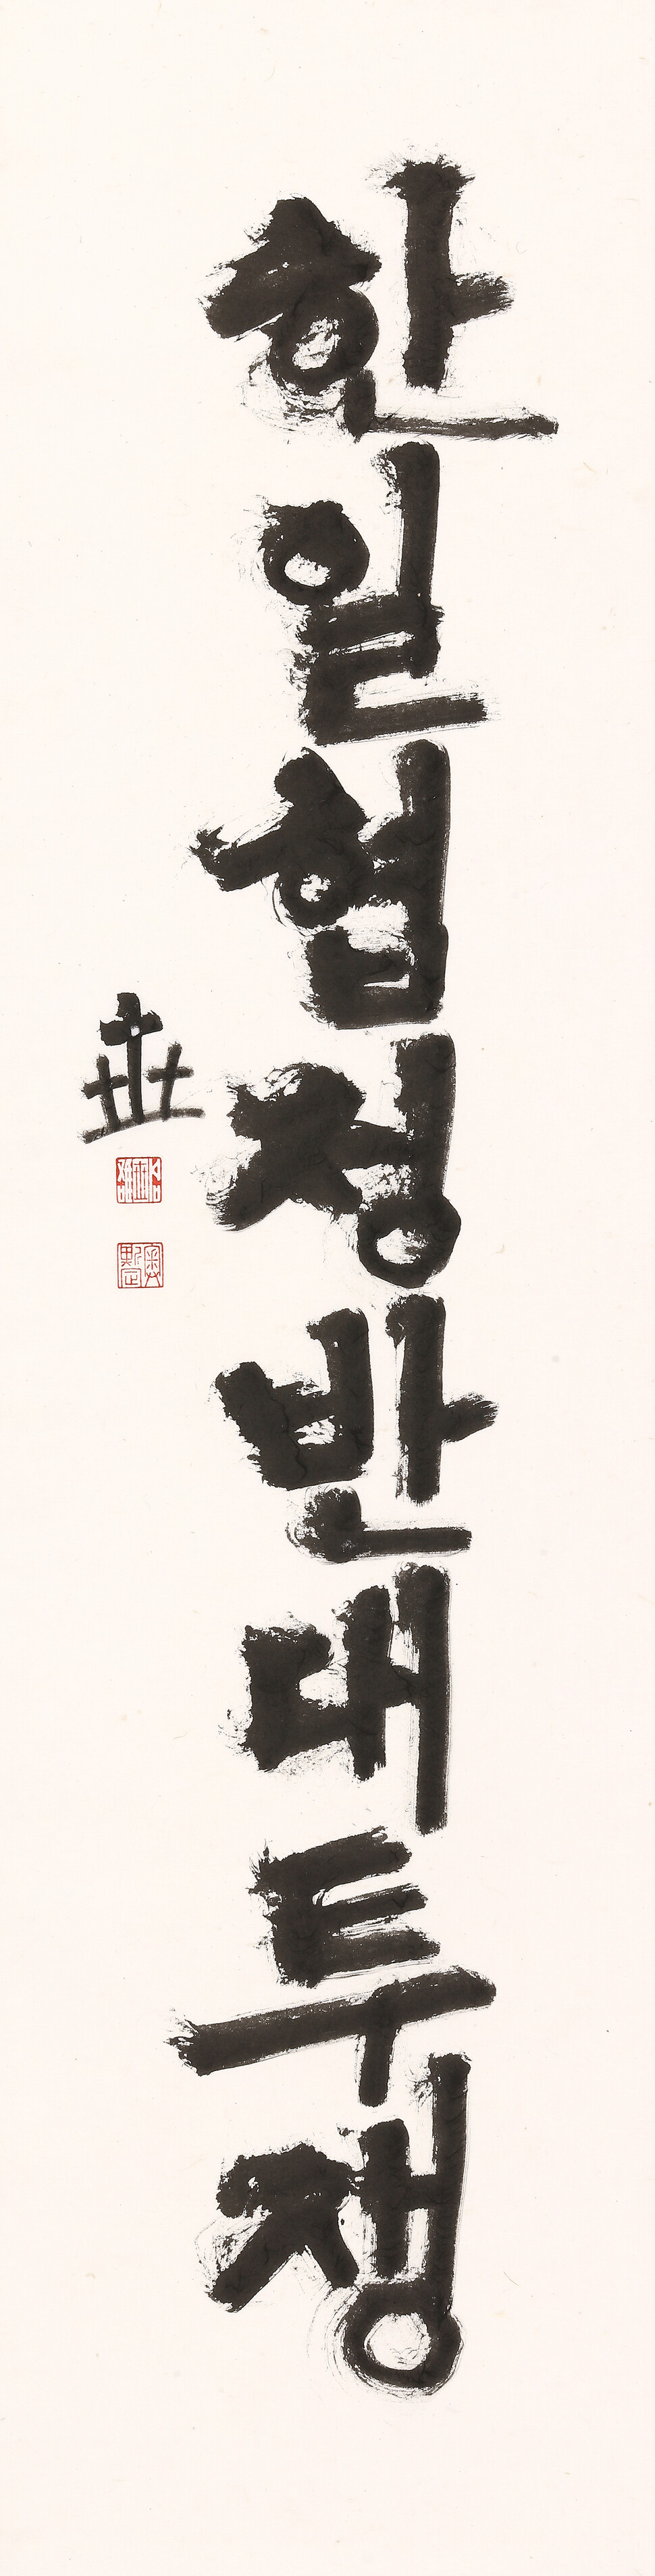 한일협정반대투쟁